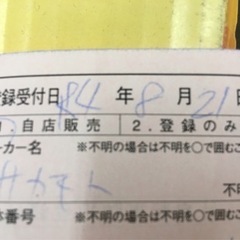 登録受付日 84年 8月 21日
自店販売 2.登録のみ
カー名 ※不明の場合は不明を○で囲む
サカモト 不
番号 ※不明の場合は不明を○で囲